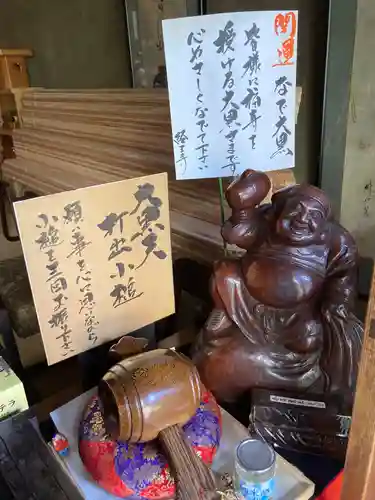 開運
なで大黒
皆様に福寿を
授ける大黒さまです
心やさしくなでて下さい
経王寺
大黒天
打出小槌
願い事を心に思いながら
小槌を三回お振り